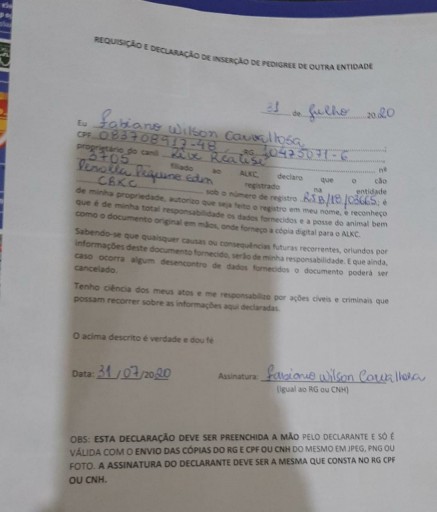 REQUISIÇÃO E DECLARAÇÃO DE INSERÇÃO DE PEDIGREE DE OUTRA ENTIDADE
31 de Julho 2020
Eu Fabiano Wilson
CPF 083708917-48 RG 10475071-6
proprietário do canil nº
3705 filiado ao ALKC, declaro que o cão
registrado na entidade
CBKC sob o número de registro RJB/18/03665, é
de minha propriedade, autorizo que seja feito o registro em meu nome, e reconheço
que é de minha total responsabilidade os dados fornecidos e a posse do animal bem
como o documento original em mãos, onde forneço a cópia digital para o ALKC.
Sabendo-se que quaisquer causas ou consequências futuras recorrentes, oriundos por
informações deste documento fornecido, serão de minha responsabilidade. E que ainda,
caso ocorra algum desencontro de dados fornecidos o documento poderá ser
cancelado.
Tenho ciência dos meus atos e me responsabilizo por ações cíveis e criminais que
possam recorrer sobre as informações aqui declaradas.
O acima descrito é verdade e dou fé
Data: 31/07/2020 Assinatura: Fabiano Wilson
(Igual ao RG ou CNH)
OBS: ESTA DECLARAÇÃO DEVE SER PREENCHIDA A MÃO PELO DECLARANTE E SÓ É
VÁLIDA COM O ENVIO DAS CÓPIAS DO RG E CPF OU CNH DO MESMO EM JPEG, PNG OU
FOTO. A ASSINATURA DO DECLARANTE DEVE SER A MESMA QUE CONSTA NO RG CPF
OU CNH.